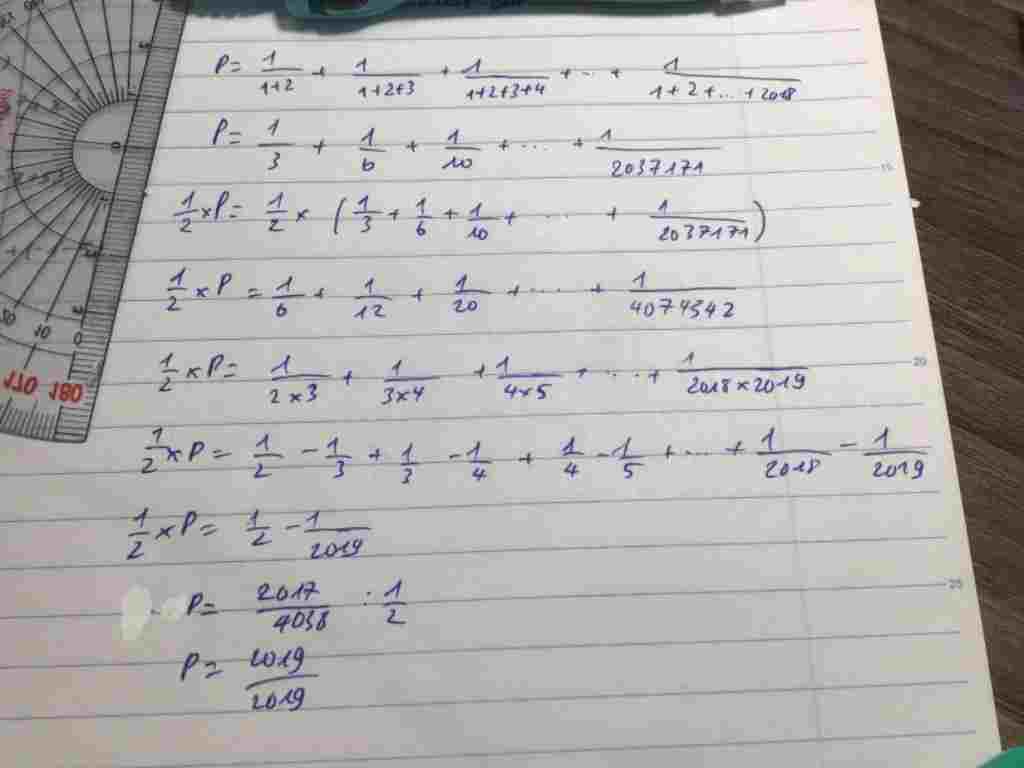 P = 1/(1+2) + 1/(1+2+3) + 1/(1+2+3+4) + ... + 1/(1+2+...+2018)
P = 1/3 + 1/6 + 1/10 + ... + 1/2037171
1/2 × P = 1/2 × (1/3 + 1/6 + 1/10 + ... + 1/2037171)
1/2 × P = 1/6 + 1/12 + 1/20 + ... + 1/4074342
1/2 × P = 1/(2×3) + 1/(3×4) + 1/(4×5) + ... + 1/(2018×2019)
1/2 × P = 1/2 - 1/3 + 1/3 - 1/4 + 1/4 - 1/5 + ... + 1/2018 - 1/2019
1/2 × P = 1/2 - 1/2019
P = 2017/4038 : 1/2
P = 2019/2019
15
20
25
110 180